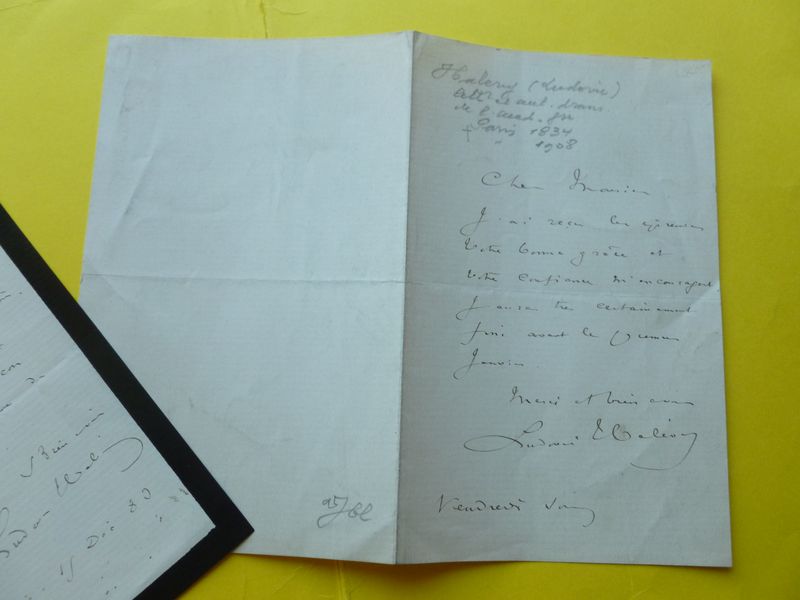 Halevy (Ludovic)
litt. et aut. dram.
de l'acad. fse
Paris 1834
" 1908
Cher Monsieur
J'ai reçu les épreuves
Votre bonne grâce et
votre confiance m'encouragent
J'aurai très certainement
fini avant le premier
Janvier.
Merci et bien à vous
Ludovic Halévy
Vendredi soir
Bien à vous
Ludovic Halévy
15 Déc 80